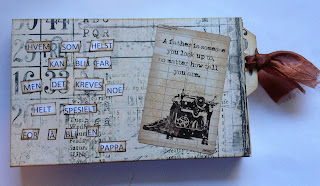 PQR
HVEM SOM HELST
KAN BLI FAR,
MEN DET KREVES NOE
HELT SPESIELT
FOR Å BLI EN
PAPPA.
A father is someone
you look up to,
no matter how tall
you are.